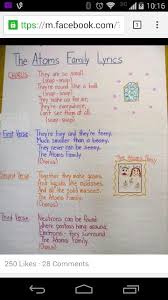 10:16
ttps://m.facebook.com/
The Atoms Family Lyrics
CHORUS They are so small
(snap-snap)
They're round like a ball
(snap-snap)
They make up the air,
They're everywhere,
Can't see them at all
(snap-snap)
First Verse They're tiny and they're teeny,
Much smaller than a beany,
They never can be seeny,
The Atoms Family
(Chorus)
The Atoms Family
Second Verse Together they make gases,
And liquids like molasses,
And all the solid masses,
The Atoms Family
(Chorus)
Third Verse Neutrons can be found
Where protons hang around,
Electrons - they surround
The Atoms Family
(Chorus)
250 Likes · 28 Comments